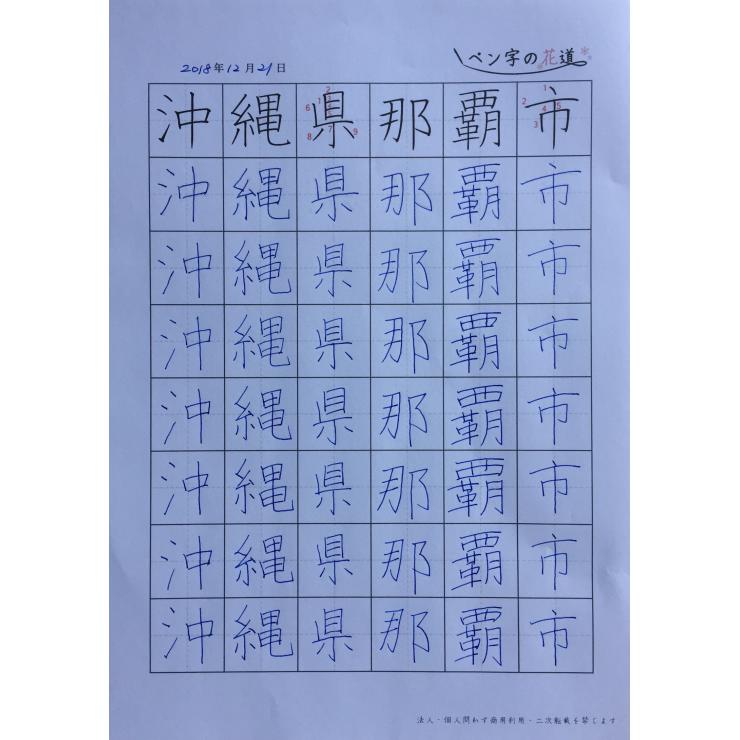 2018年12月21日
ペン字の花道
沖縄県那覇市
沖縄県那覇市
沖縄県那覇市
沖縄県那覇市
沖縄県那覇市
沖縄県那覇市
沖縄県那覇市
沖縄県那覇市
法人・個人問わず商用利用・二次転載を禁じます